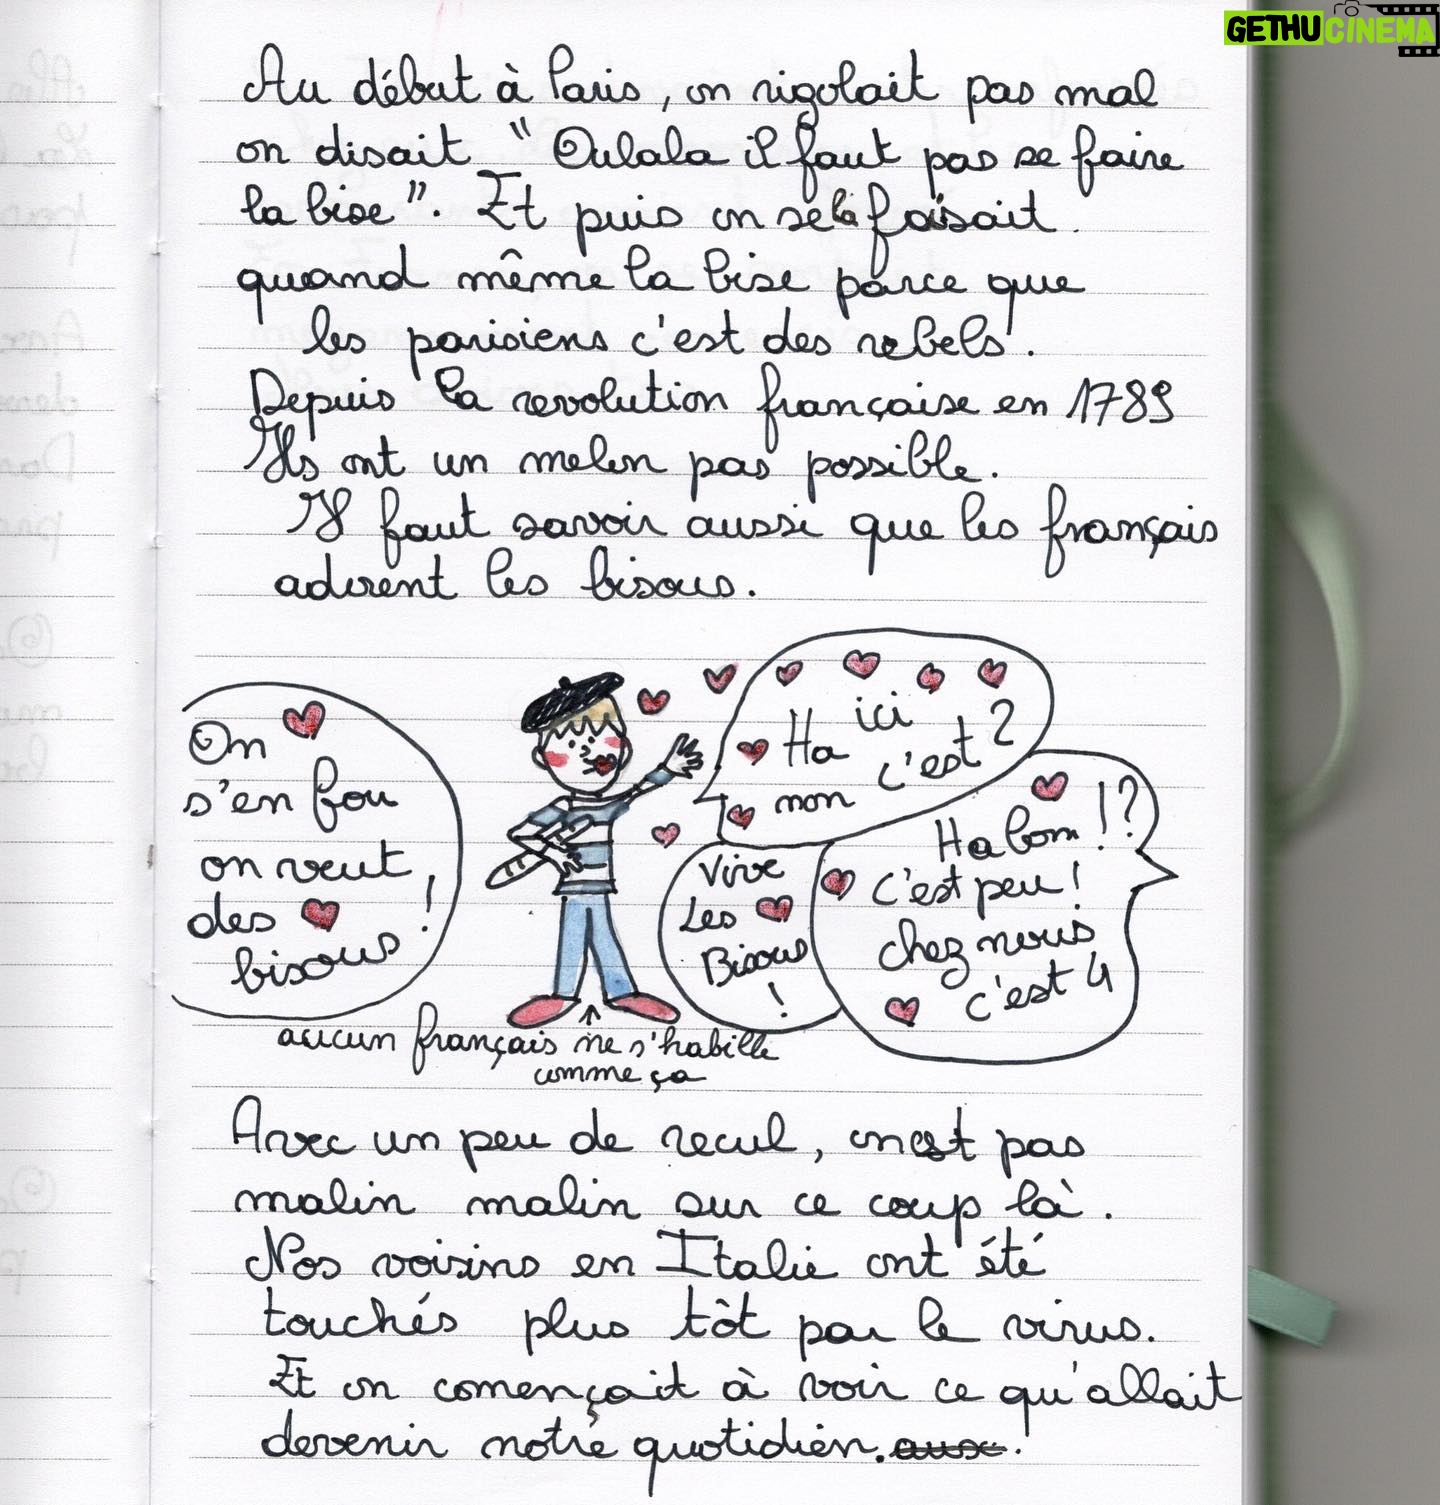 GETHUCINEMA
Au début à Paris, on rigolait pas mal
on disait "Oulala il faut pas se faire
la bise". Et puis on se la faisait
quand même la bise parce que
les parisiens c'est des rebels.
Depuis la revolution française en 1789
Ils ont un melon pas possible.
Il faut savoir aussi que les français
adorent les bisous.
On
s'en fou
on veut
des
bisous!
Ha ici
non c'est 2
Vive
Les
Bisous
!
Ha bon!?
c'est peu!
chez nous
c'est 4
aucun français ne s'habille
comme ça
Avec un peu de recul, on est pas
malin malin sur ce coup là.
Nos voisins en Italie ont été
touchés plus tôt par le virus.
Et on començait à voir ce qu'allait
devenir notre quotidien.